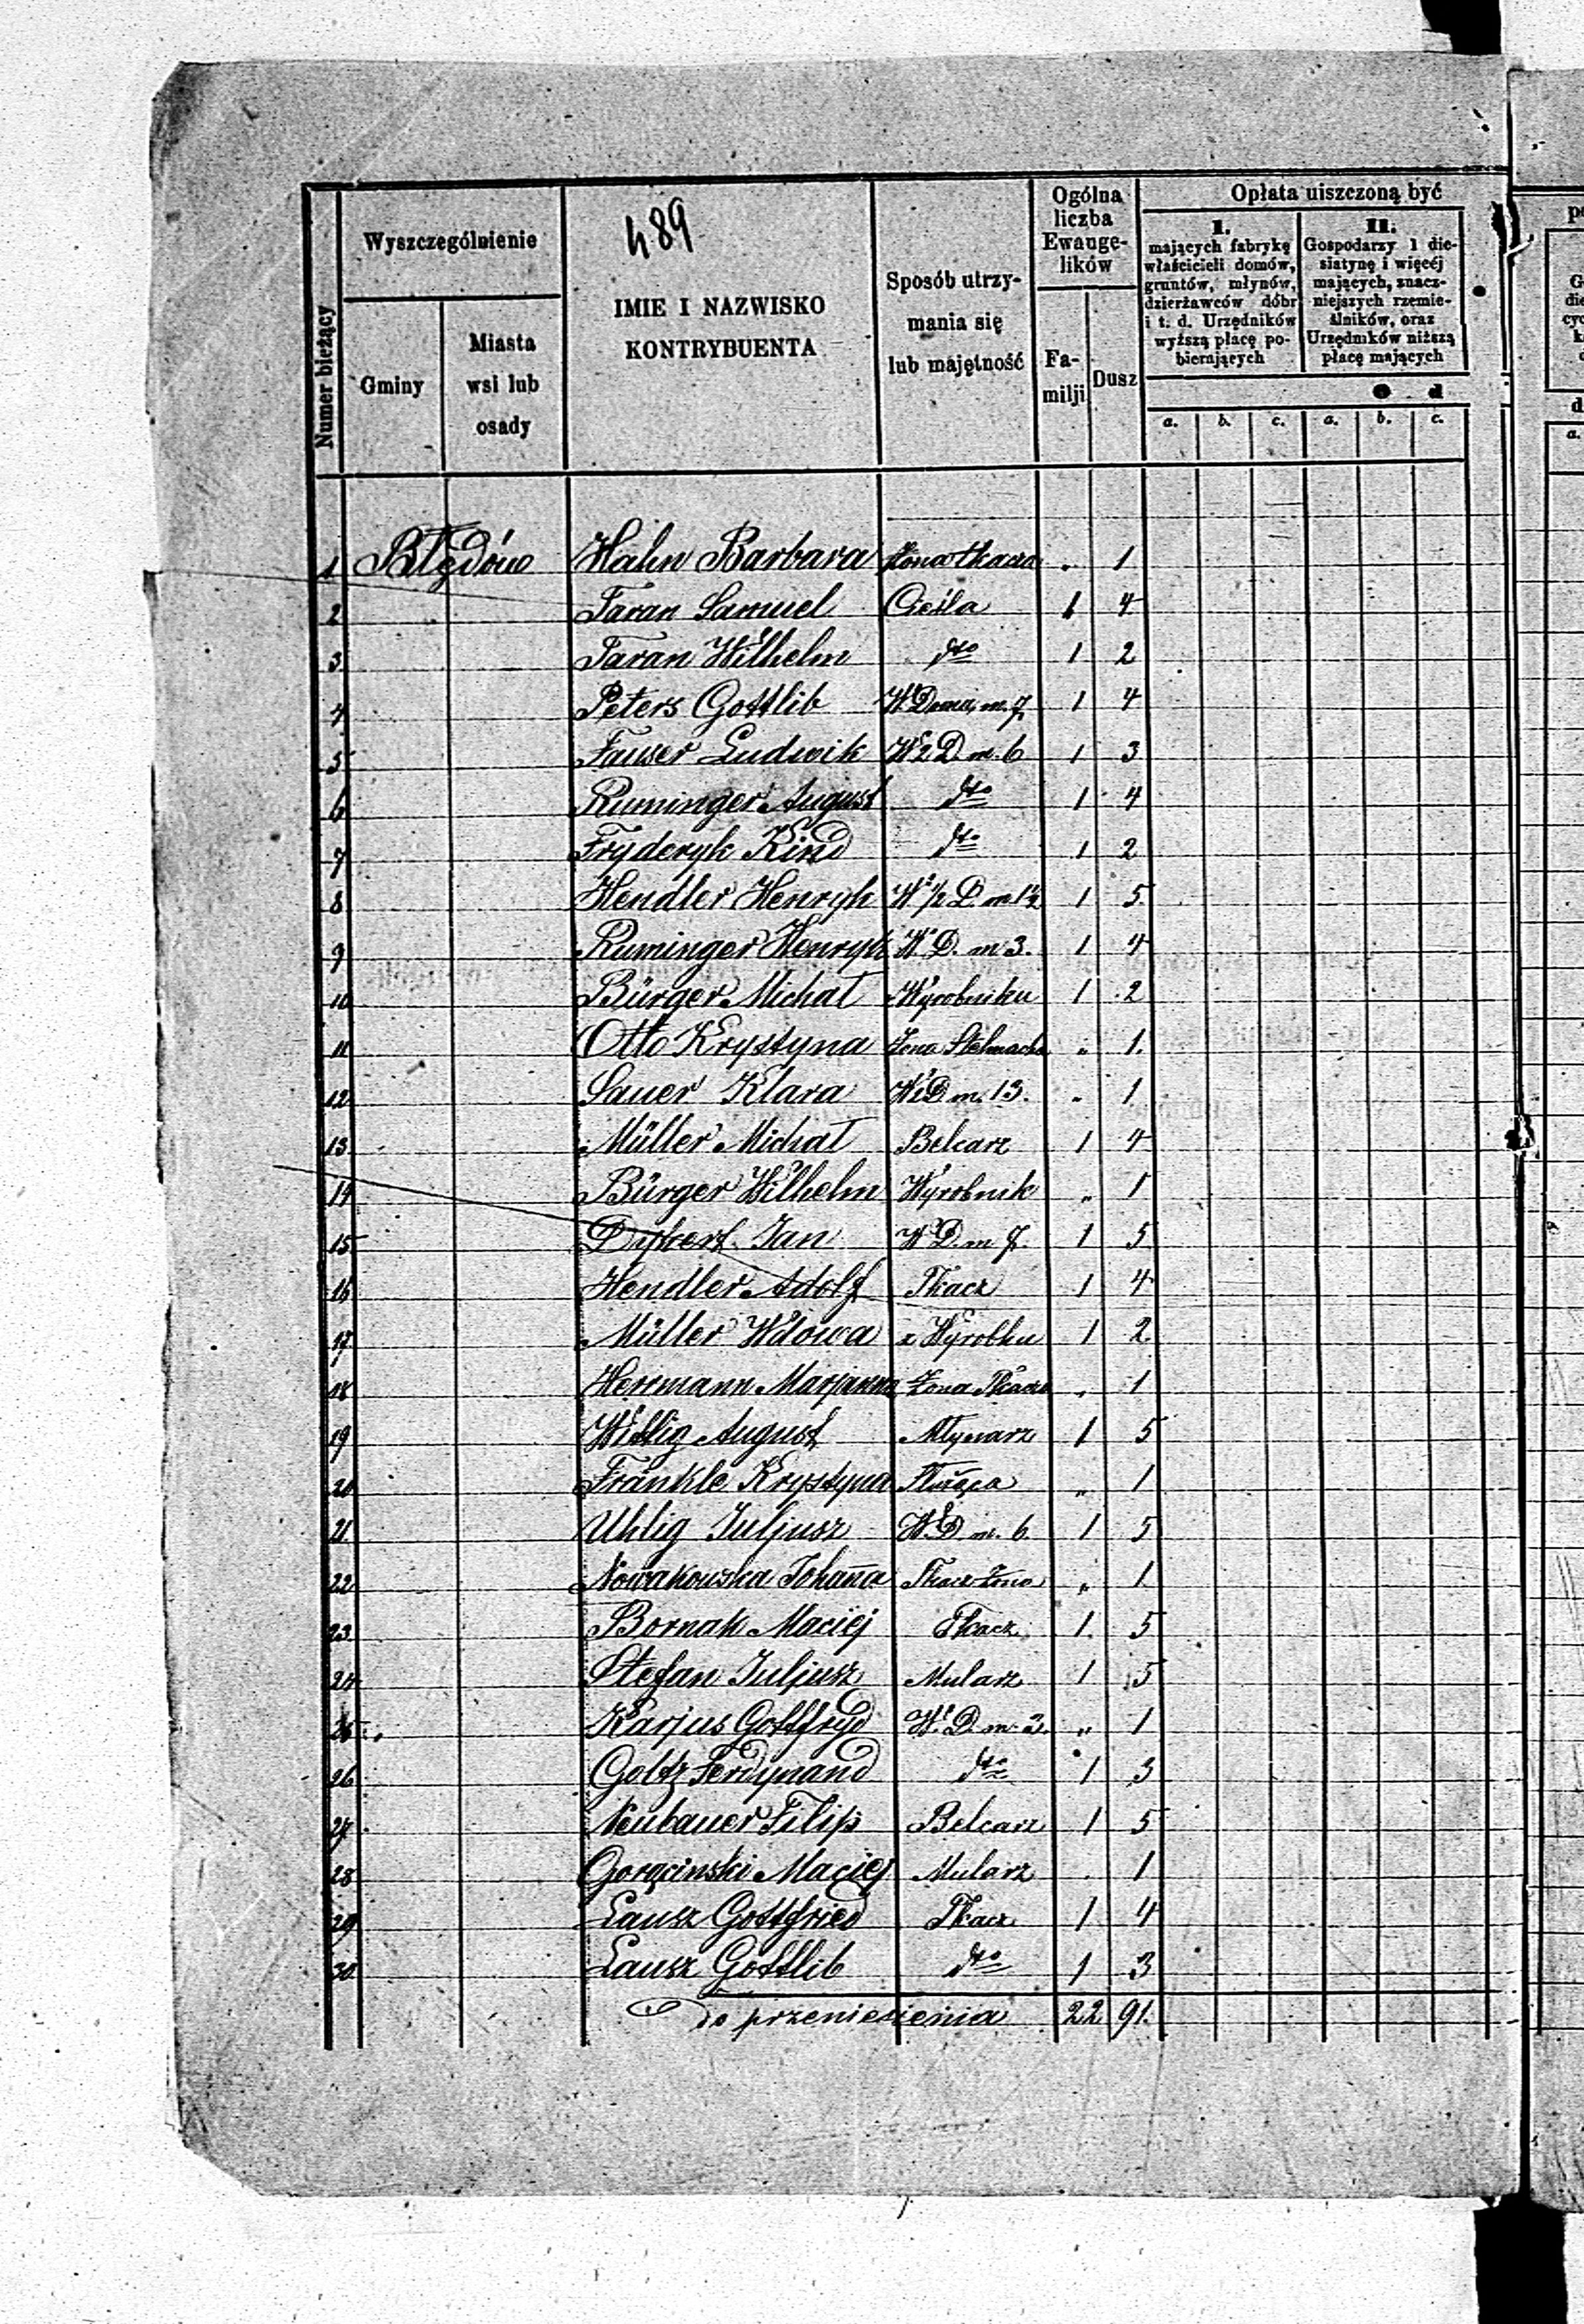 489
Numer bieżący
Wyszczególnienie
Gminy
Miasta
wsi lub
osady
IMIE I NAZWISKO
KONTRYBUENTA
Sposób utrzy-
mania się
lub majętność
Ogólna
liczba
Ewange-
lików
Fa-
milji
Dusz
Opłata uiszczoną być
I.
mających fabrykę
właścicieli domów,
gruntów, młynów,
dzierżawców dóbr
i t. d. Urzędników
wyższą płacę po-
bierających
II.
Gospodarzy 1 die-
siatynę i więcéj
mających, znacz-
niejszych rzemie-
ślników, oraz
Urzędników niższą
płacę mających
o d
a. b. c. a. b. c.
1 Błędów Hahn Barbara Żona tkacza „ 1
2 Taran Samuel Cieśla 1 4
3 Taran Wilhelm dto 1 2
4 Peters Gottlib Wł Domu, m. 7 1 4
5 Fauser Ludwik Wł D. m. 6 1 3
6 Ruminger August dto 1 4
7 Fryderyk Kind dto 1 2
8 Hendler Henryk Wł ½ D. m 1½ 1 5
9 Ruminger Henryk Wł D. m 3. 1 4
10 Bürger Michał Wyrobniku 1 2
11 Otto Krystyna Żona Stelmacha „ 1.
12 Sauer Klara Wł D m. 13. „ 1
13 Müller Michał Belcarz 1 4
14 Bürger Wilhelm Wyrobnik „ 1
15 Dykert Jan Wł D. m 7. 1 5
16 Hendler Adolf Tkacz 1 4
17 Müller Wdowa z Wyrobku 1 2
18 Herrmann Marjanna Żona Tkacza „ 1
19 August Młynarz 1 5
20 Fränkle Krystyna Służąca „ 1
21 Uhlig Juljusz Wł D m. 6 1 5
22 Nowakowska Johaña Tkacz Żona „ 1
23 Bornak Maciéj Tkacz 1 5
24 Stefan Juljusz Mularz 1 5
25 Karjus Gottfryd Wł D. m. 3 „ 1
26 Goltz Ferdynand dto 1 3
27 Neubauer Filip Belcarz 1 5
28 Gorąciński Maciej Mularz . 1
29 Lausz Gottfried Tkacz 1 4
30 Lausz Gottlib dto 1 3
Do przeniesienia 22 91.